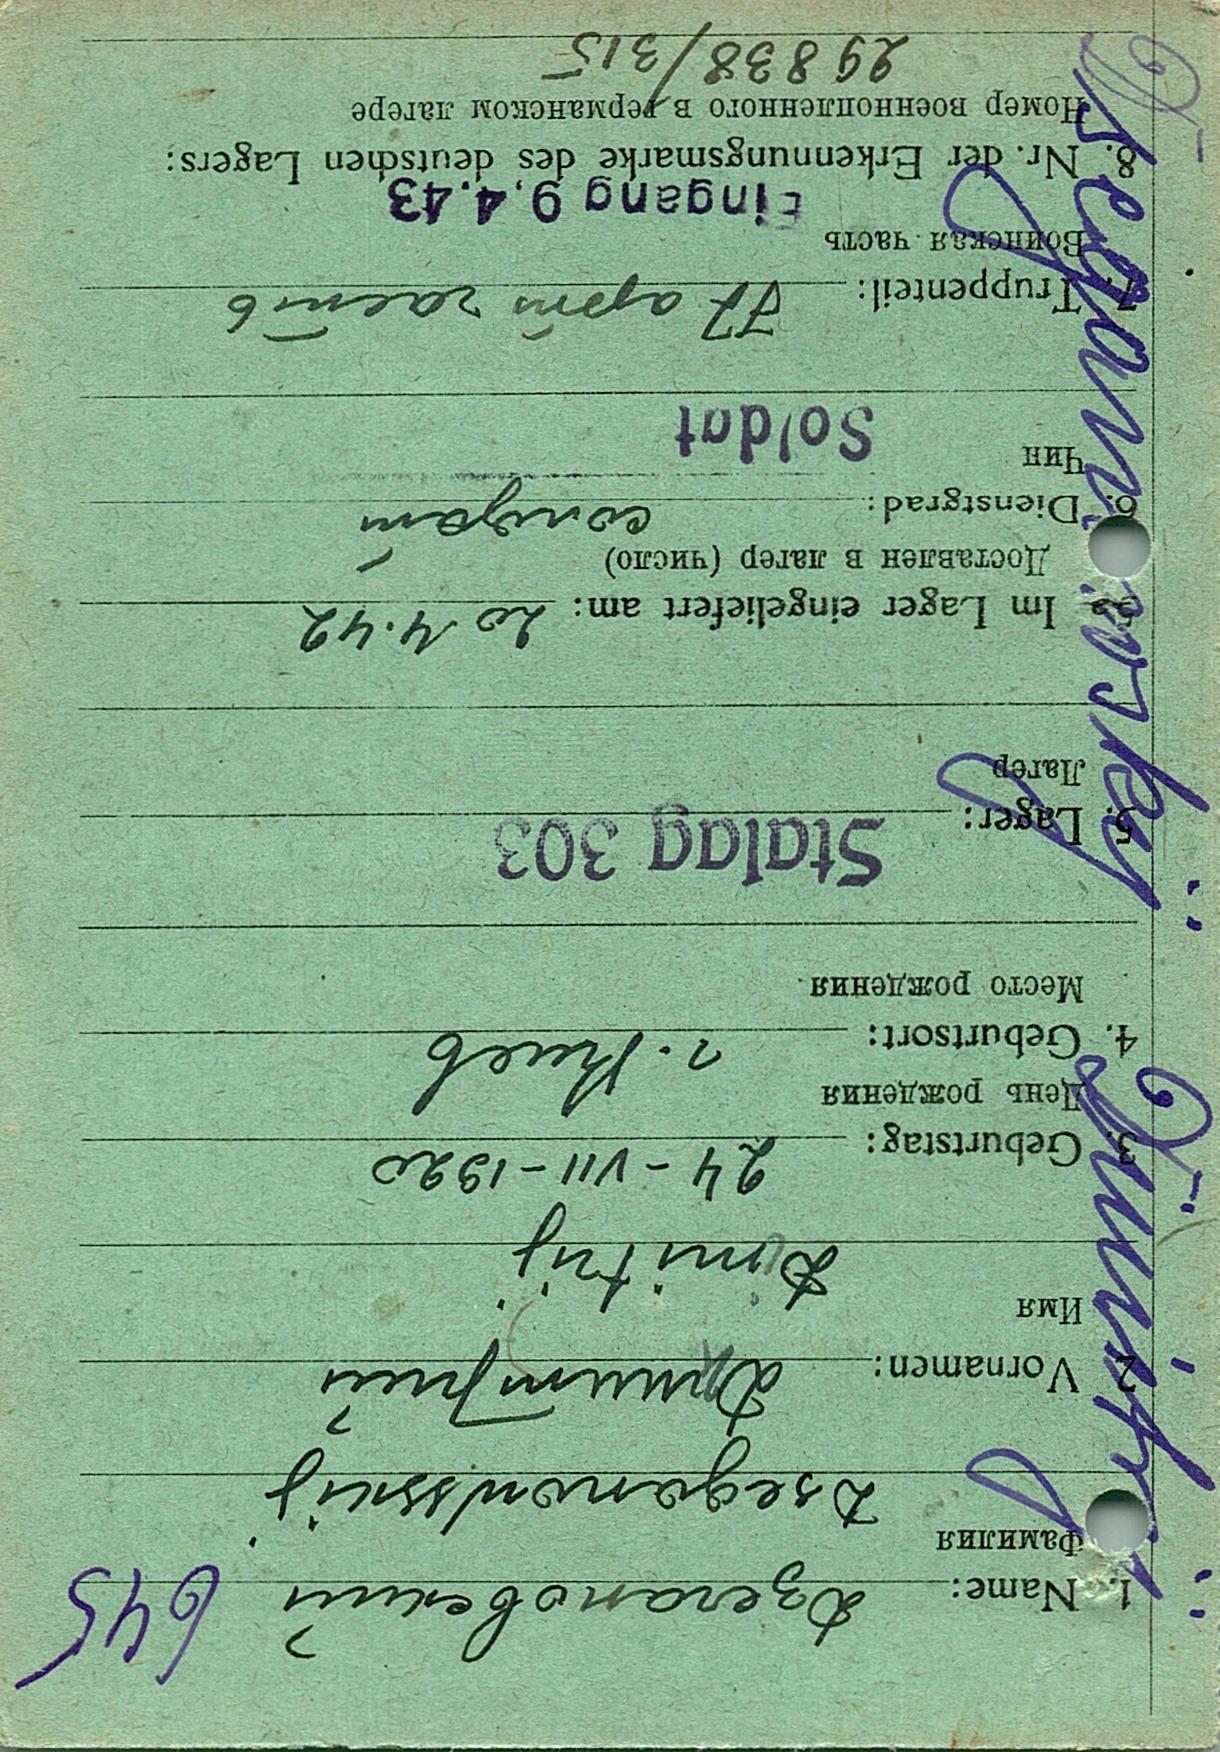 645
1. Name: Дзегановский
Фамилия
Dseganowsskij
2. Vornamen: Дмитрий
Имя
Dmitrij
3. Geburtstag: 24-VII-1920
День рождения
4. Geburtsort: г. Киев
Место рождения
Stalag 303
5. Lager:
Лагер
5a Im Lager eingeliefert am: 20 4.42
Доставлен в лагер (число)
6. Dienstgrad: солдат
Чин
Soldat
7. Truppenteil: 77 арт часть
Воинская часть
Eingang 9.4.43
8. Nr. der Erkennungsmarke des deutschen Lagers:
Номер военнопленного в германском лагере
29838/315
Dseganowskij Dmitrij